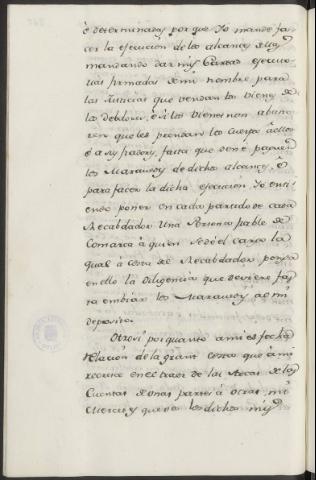 é determinadas porque Yo mande fa
cer la esecucion de los alcances dellas
mandando dar mis Cartas executo
rias firmadas de mi nombre para
las Justicias que vendan los vienes de
los debdores, é si los vienes non abasta
ren que les prendan los cuerpos á ellos
é a sus fiadores, fasta que sean é paguen
los Maravedis de dichos alcances, é
para facer la dicha esecucion, Yo enti
endo poner en cada partido de cada
Recabdador Una Persona fiable de
Comarca á quien se dé el cargo la
qual á costa de Recabdador ponga
en ello la diligencia que deviere fas
ta embiar los Maravedis a mi
deposito.
Otrosi por quanto a mi es fecha
relacion de la gran costa que á mi
recrece en el traer de las Arcas de los
Cuentas de unas partes á otras, mi
Merced es que los dichos mis